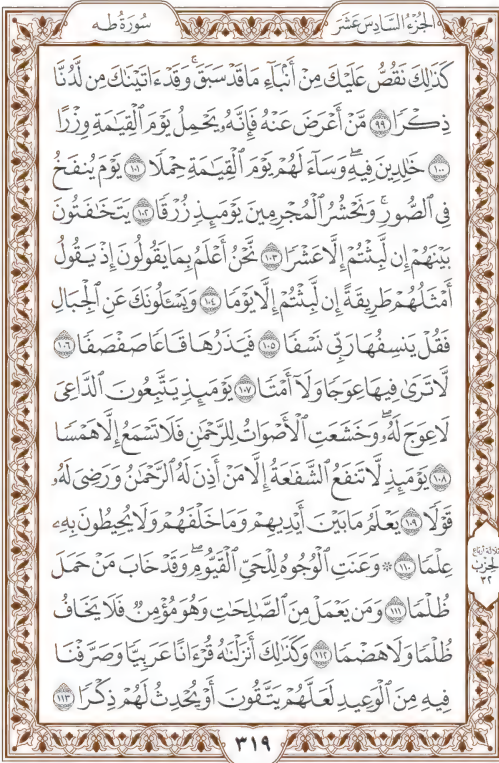 الجُزْءُ السَّادِسَ عَشَرَ
سُورَةُ طه
كَذَٰلِكَ نَقُصُّ عَلَيْكَ مِنْ أَنۢبَآءِ مَا قَدْ سَبَقَۚ وَقَدْ ءَاتَيْنَٰكَ مِن لَّدُنَّا
ذِكْرًا ٩٩ مَّنْ أَعْرَضَ عَنْهُ فَإِنَّهُۥ يَحْمِلُ يَوْمَ ٱلْقِيَٰمَةِ وِزْرًا
١٠٠ خَٰلِدِينَ فِيهِۖ وَسَآءَ لَهُمْ يَوْمَ ٱلْقِيَٰمَةِ حِمْلًا ١٠١ يَوْمَ يُنفَخُ
فِى ٱلصُّورِۚ وَنَحْشُرُ ٱلْمُجْرِمِينَ يَوْمَئِذٍ زُرْقًا ١٠٢ يَتَخَٰفَتُونَ
بَيْنَهُمْ إِن لَّبِثْتُمْ إِلَّا عَشْرًا ١٠٣ نَّحْنُ أَعْلَمُ بِمَا يَقُولُونَ إِذْ يَقُولُ
أَمْثَلُهُمْ طَرِيقَةً إِن لَّبِثْتُمْ إِلَّا يَوْمًا ١٠٤ وَيَسْـَٔلُونَكَ عَنِ ٱلْجِبَالِ
فَقُلْ يَنسِفُهَا رَبِّى نَسْفًا ١٠٥ فَيَذَرُهَا قَاعًا صَفْصَفًا ١٠٦
لَّا تَرَىٰ فِيهَا عِوَجًا وَلَآ أَمْتًا ١٠٧ يَوْمَئِذٍ يَتَّبِعُونَ ٱلدَّاعِىَ
لَا عِوَجَ لَهُۥۖ وَخَشَعَتِ ٱلْأَصْوَاتُ لِلرَّحْمَٰنِ فَلَا تَسْمَعُ إِلَّا هَمْسًا
١٠٨ يَوْمَئِذٍ لَّا تَنفَعُ ٱلشَّفَٰعَةُ إِلَّا مَنْ أَذِنَ لَهُ ٱلرَّحْمَٰنُ وَرَضِىَ لَهُۥ
قَوْلًا ١٠٩ يَعْلَمُ مَا بَيْنَ أَيْدِيهِمْ وَمَا خَلْفَهُمْ وَلَا يُحِيطُونَ بِهِۦ
عِلْمًا ١١٠ ۞ وَعَنَتِ ٱلْوُجُوهُ لِلْحَىِّ ٱلْقَيُّومِۖ وَقَدْ خَابَ مَنْ حَمَلَ
ظُلْمًا ١١١ وَمَن يَعْمَلْ مِنَ ٱلصَّٰلِحَٰتِ وَهُوَ مُؤْمِنٌ فَلَا يَخَافُ
ظُلْمًا وَلَا هَضْمًا ١١٢ وَكَذَٰلِكَ أَنزَلْنَٰهُ قُرْءَانًا عَرَبِيًّا وَصَرَّفْنَا
فِيهِ مِنَ ٱلْوَعِيدِ لَعَلَّهُمْ يَتَّقُونَ أَوْ يُحْدِثُ لَهُمْ ذِكْرًا ١١٣
ثلاثة أرباع
الحزب
٣٢
٣١٩